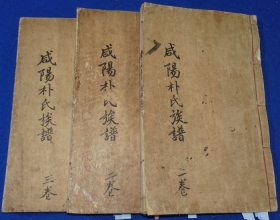 咸陽朴氏族譜 一卷
咸陽朴氏族譜 二卷
咸陽朴氏族譜 三卷